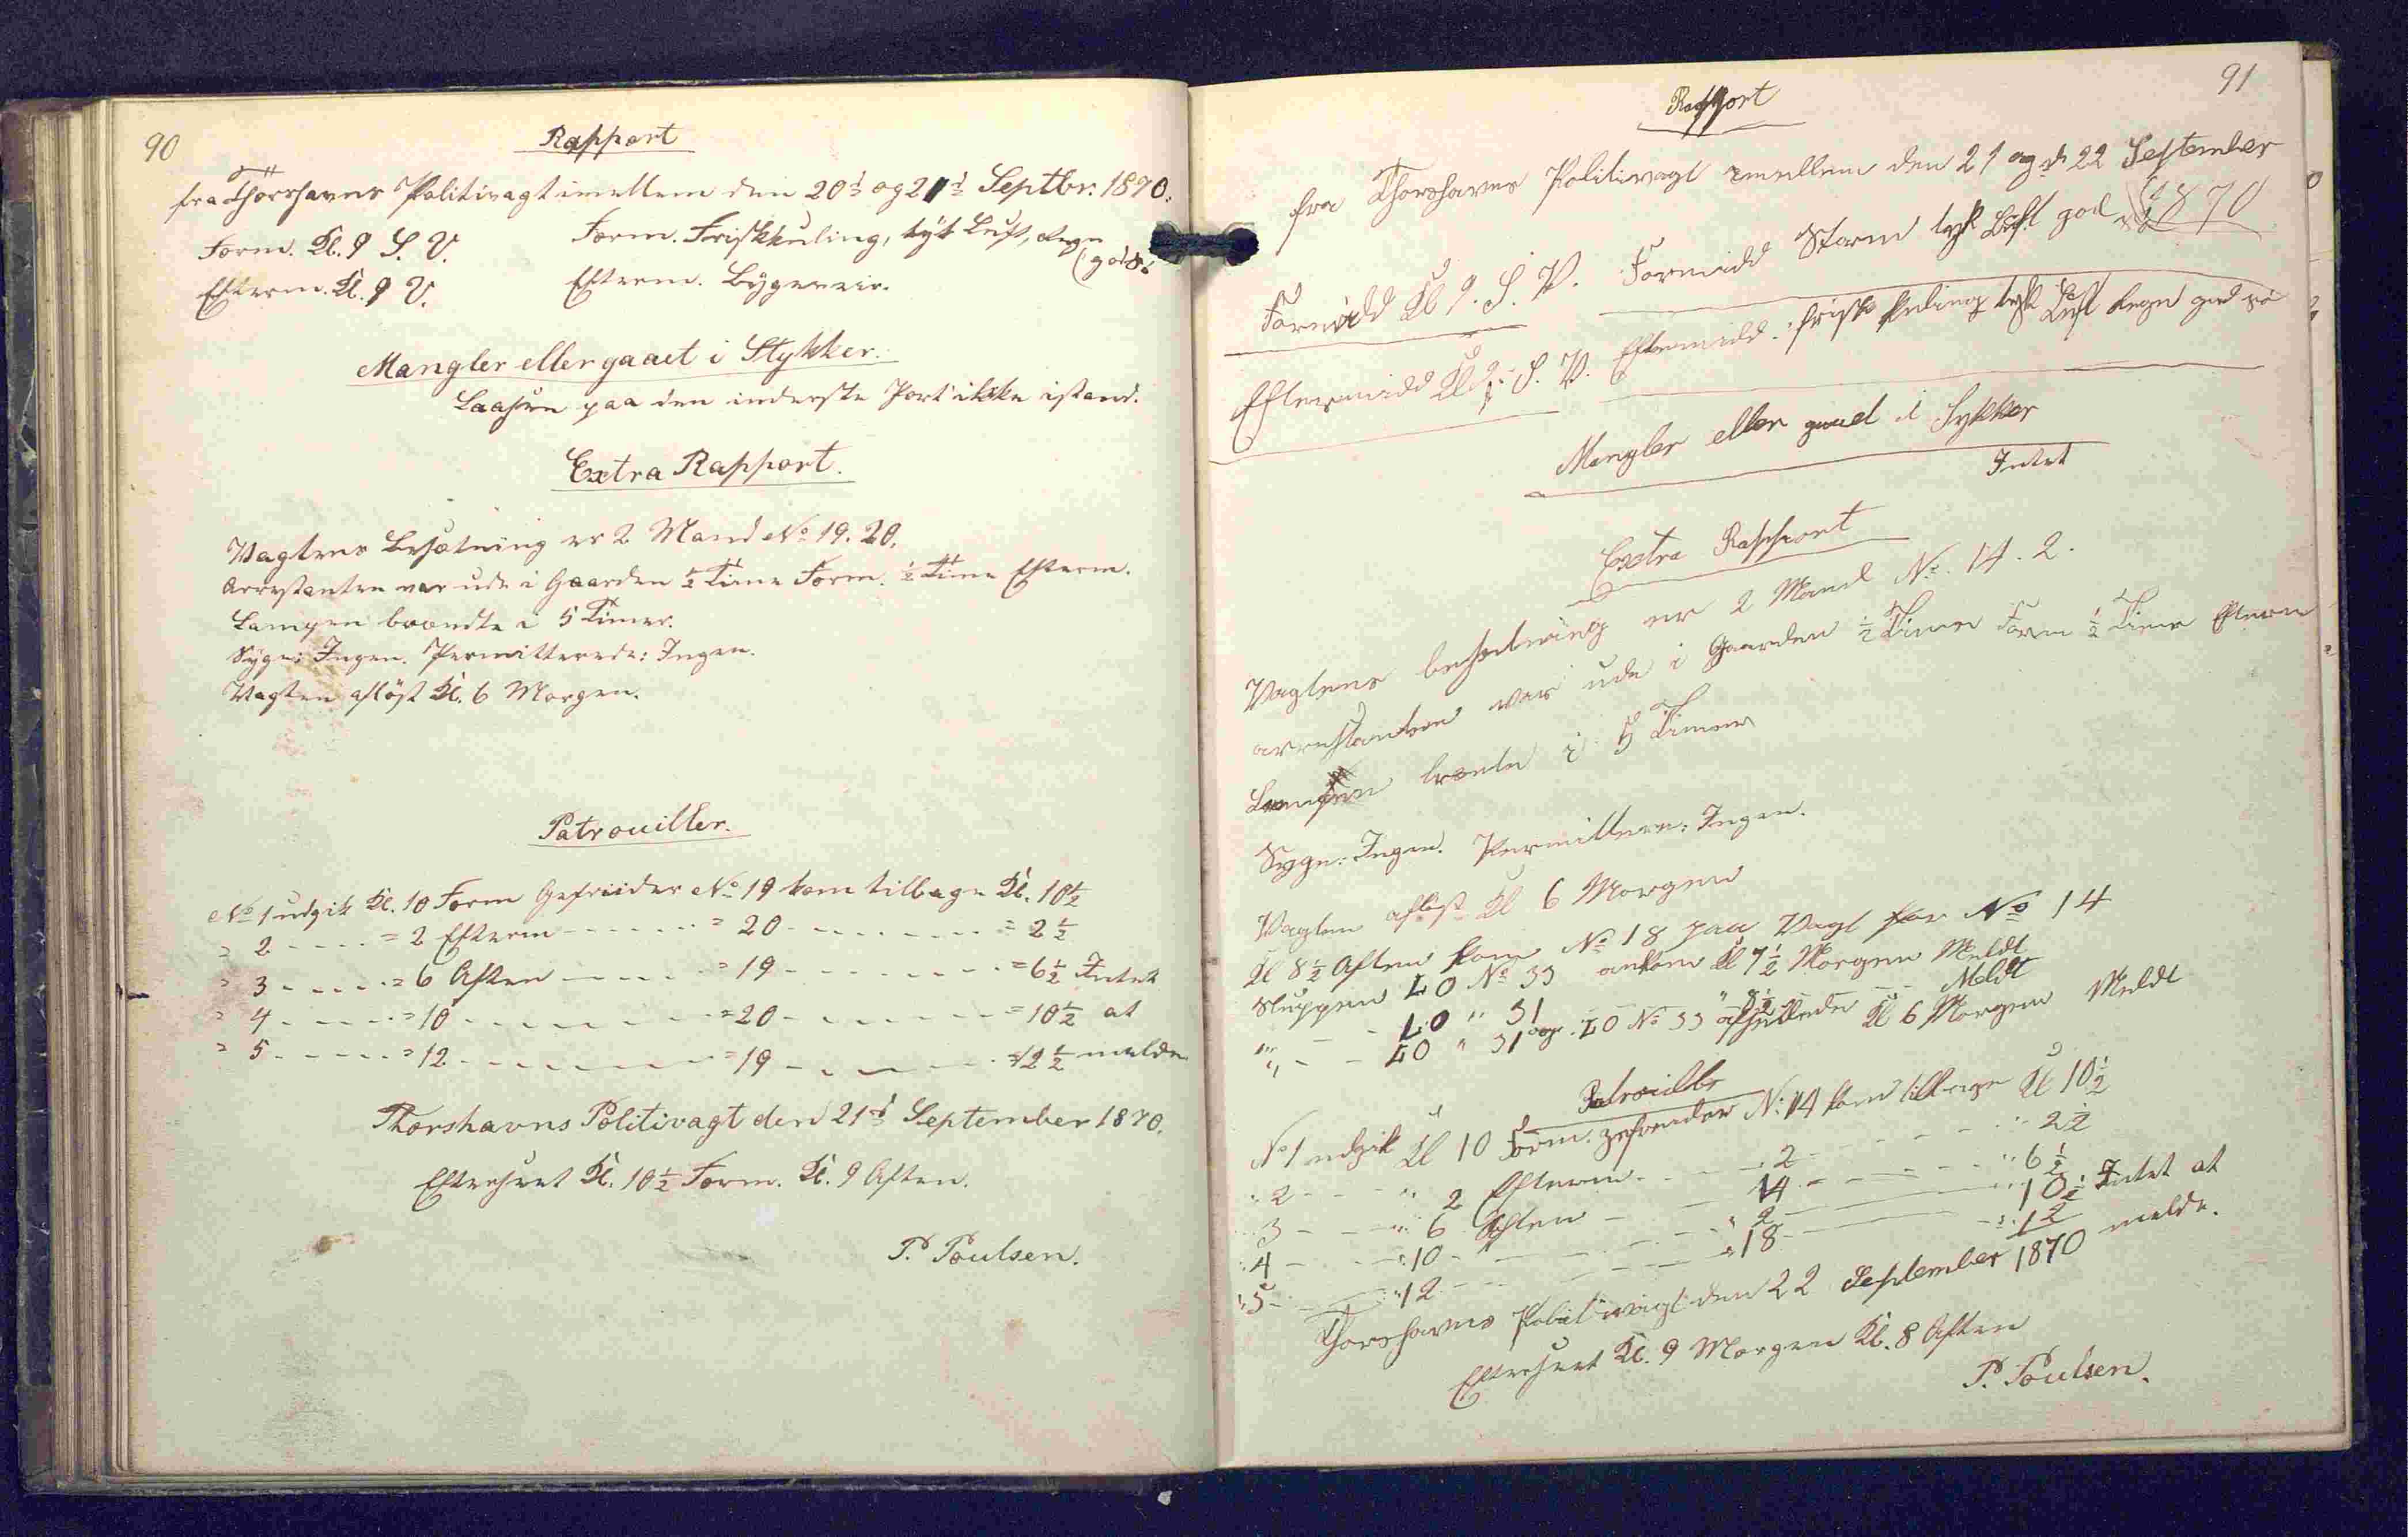 90
Rapport
fra Thorshavns Politivagt imellem den 20d og 21d Septbr. 1870.
Form. Kl. 9 S. V. Form. Frisk kuling, tyk Luft, Regn
(god Sö
Efterm. Kl. 9 V. Efterm. Bygeveir.
Mangler eller gaaet i Stykker.
Laasen paa den inderste Port ikke istand.
Extra Rapport.
Vagtens Besætning er 2 Mand No 19. 20.
Arrestanten var ude i Gaarden ½ Time Form. ½ Time Efterm.
Lampen brændte i 5 Timer.
Syge: Ingen. Permitterede: Ingen.
Vagten aflöst Kl. 6 Morgen.
Patrouiller.
No 1 udgik Kl. 10 Form Gefreider No 19 kom tilbage Kl. 10½
= 2 - - - - = 2 Efterm - - - - - - = 20 - - - - - - - - = 2½
= 3 - - - - = 6 Aften - - - - - = 19 - - - - - - - - = 6½ Intet
= 4 - - - - = 10 - - - - - - - - = 20 - - - - - - - - = 10½ at
= 5 - - - - = 12 - - - - - - - - = 19 - - - - - - - = 12½ melde
Thorshavns Politivagt den 21d September 1870.
Efterseet Kl. 10½ Form. Kl. 9 Aften.
P. Poulsen.
91
Rapport
fra Thorshavns Politivagt imellem den 21 og d 22 September
1870
Formidd Kl 9. S. V. Formidd Storm tyk Luft god
Eftermidd Kl 9. S. V. Eftermidd. frisk kuling tyk Luft Regn god sö
Mangler eller gaaed i Sykker
Intet
Extra Rapport
Vagtens besætning er 2 Mand No. 14. 2.
arrestanten var ude i Gaarden ½ Time Form ½ Time Efterm
Lampen brænte i 5 Timer
Syge: Ingen. Permittere: Ingen.
Vagten aflöst Kl 6 Morgen
Kl 8½ Aften kom No 18 paa Vagt for No 14
Sluppen LO No 33 ankom Kl 7½ Morgen Meldt
" - - LO " 31 - - " 8½ - - Meldt
" - - LO " 31 og LO No 33 afseilede Kl 6 Morgen Meldt
Patroille
No 1 udgik Kl 10 Form. gefreider No 14 kom tilbage Kl 10½
" 2 - - - " 2 Efterm - - - " 2 - - - - - " 2½
" 3 - - - " 6 Aften - - - 14 - - - - - " 6½
" 4 - - - " 10 - - - - - " 2 - - - - - " 10½ Intet at
" 5 - - - " 12 - - - - - " 18 - - - - - " 12 melde.
Thorshavns Politivagt den 22 September 1870
Efterseet Kl. 9 Morgen Kl. 8 Aften
P. Poulsen.